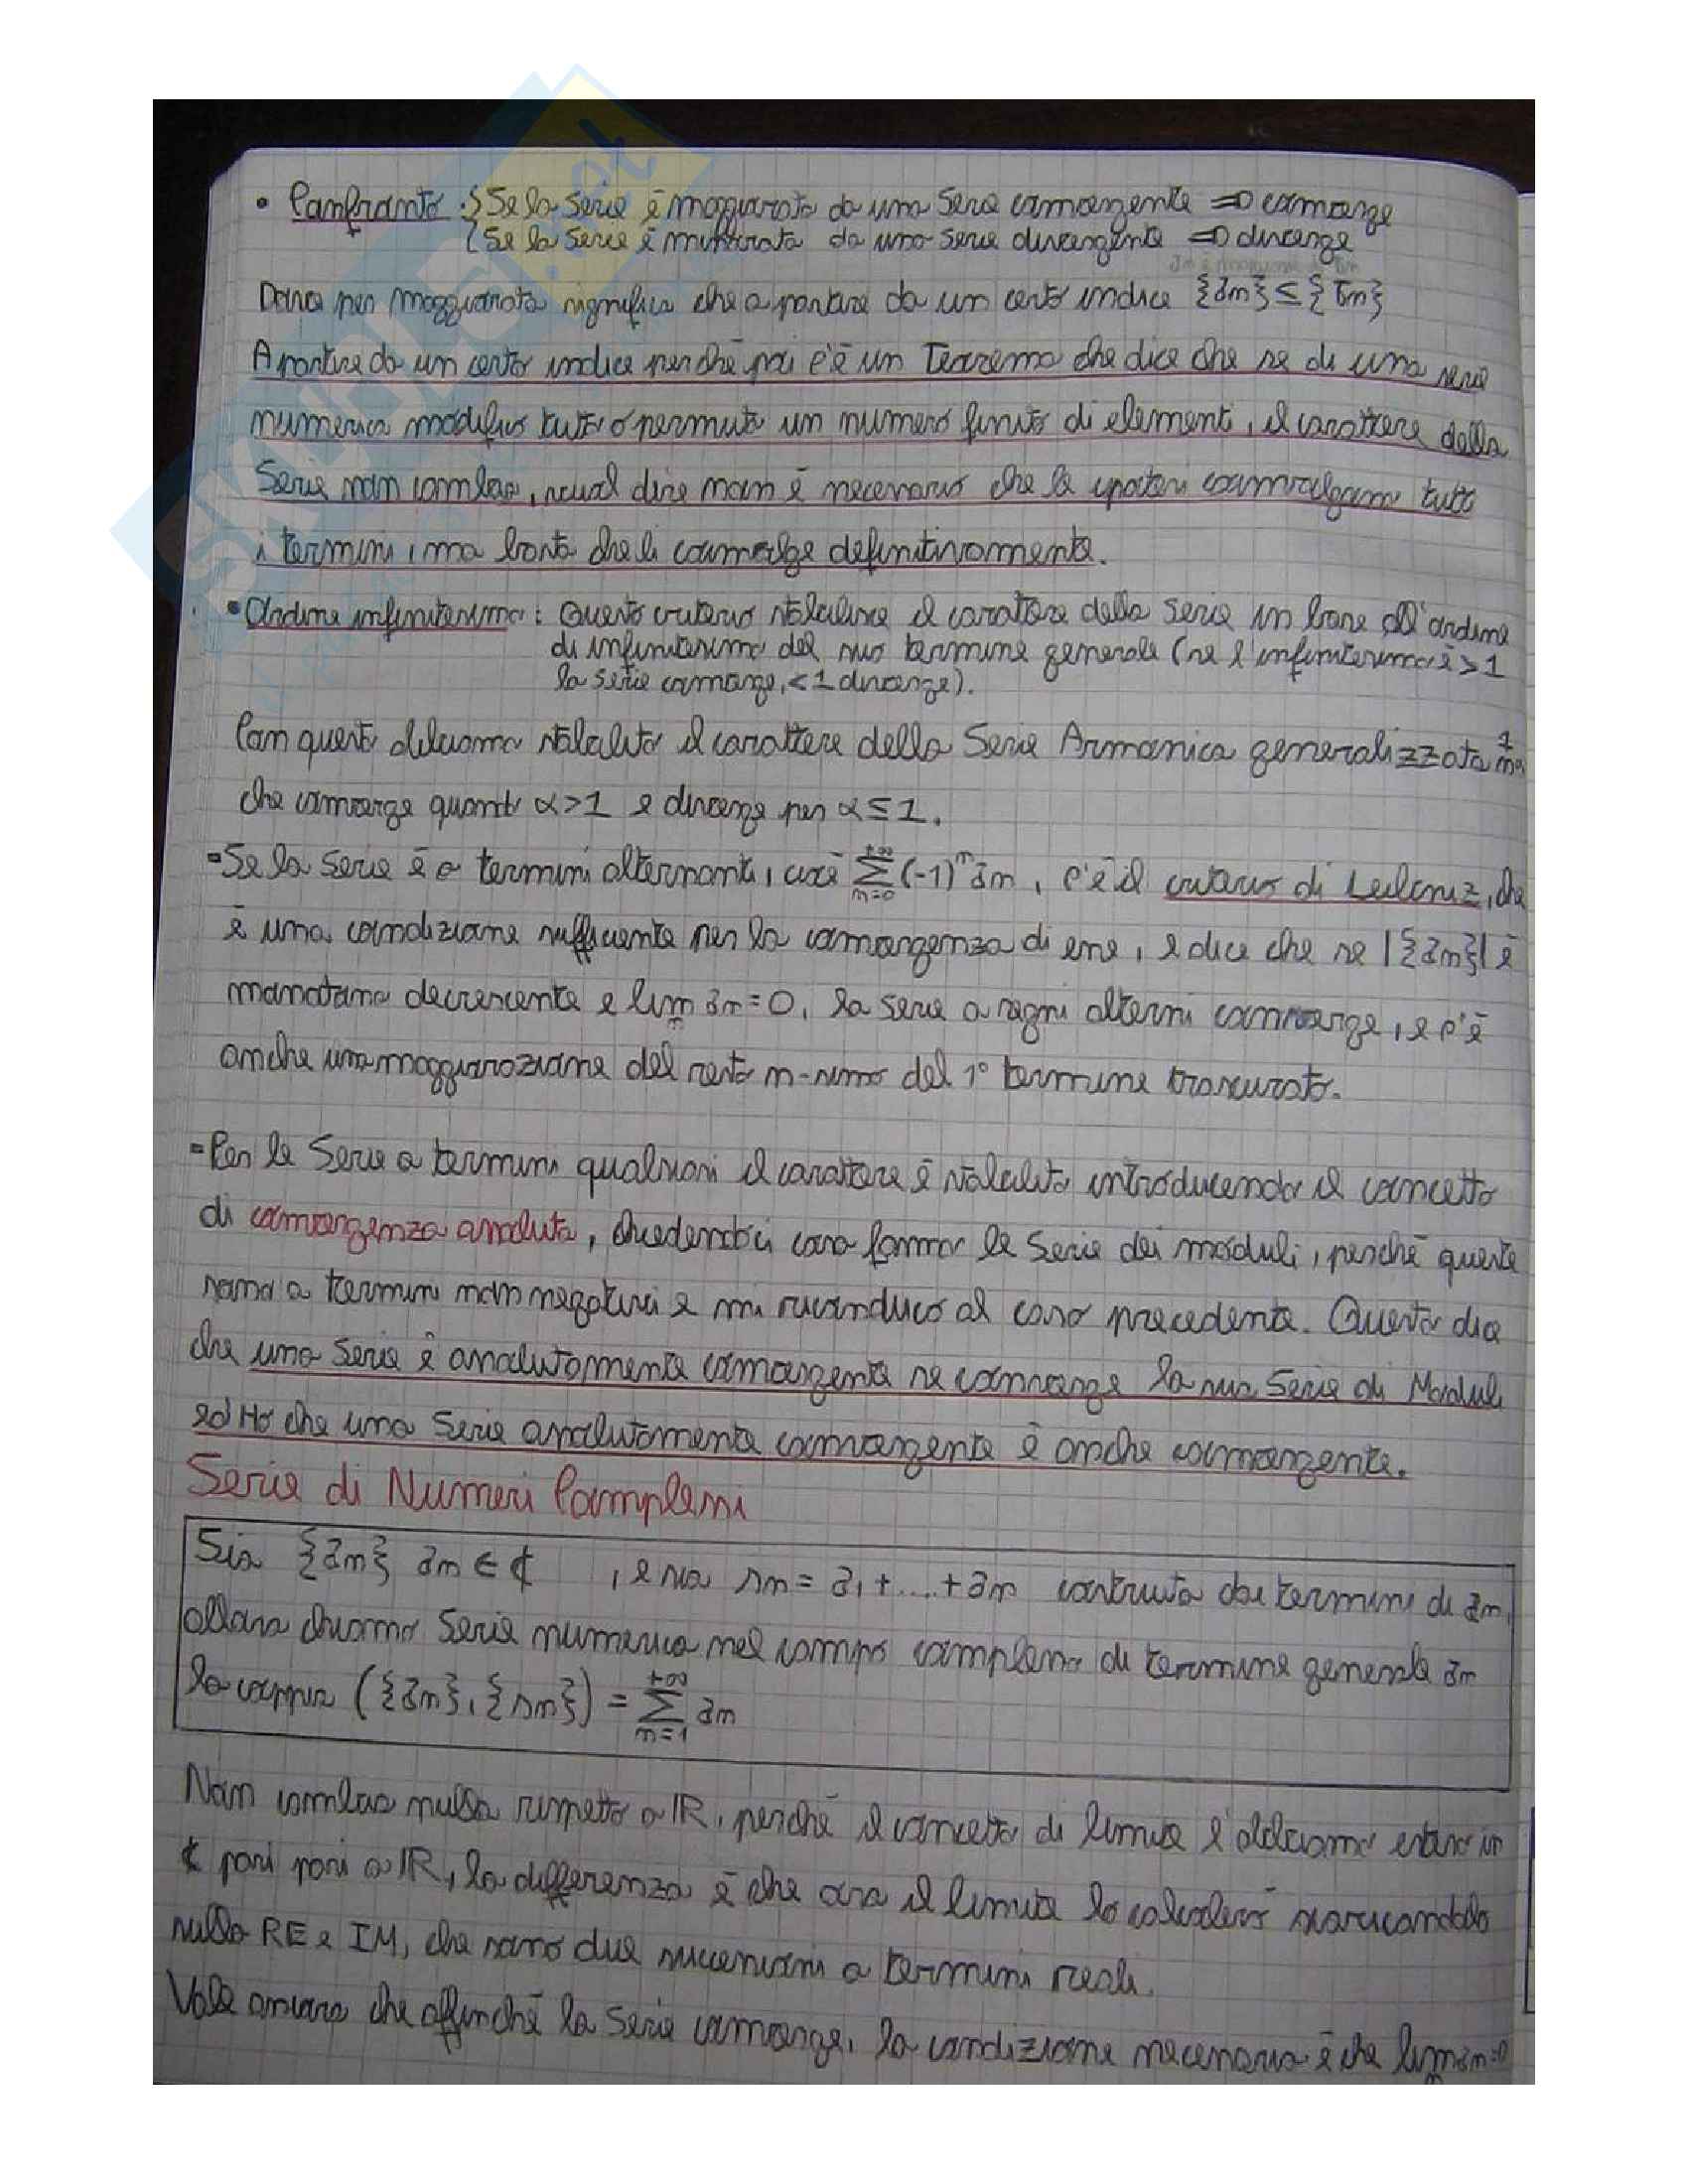 • Confronto: { Se la serie è maggiorata da una serie convergente ⇒ converge
{ Se la serie è minorata da una serie divergente ⇒ diverge
Dove per maggiorata significa che a partire da un certo indice {an} ≤ {bn}
A partire da un certo indice perché poi c'è un Teorema che dice che se di una serie
numerica modifico tutto o permuto un numero finito di elementi, il carattere della
Serie non cambia, vuol dire non è necessario che le ipotesi coinvolgano tutti
i termini, ma basta che li coinvolge definitivamente.
• Ordine infinitesimo: Questo criterio stabilisce il carattere della serie in base all'ordine
di infinitesimo del suo termine generale (se l'infinitesimo è >1
la serie converge, <1 diverge).
Con questi abbiamo stabilito il carattere della Serie Armonica generalizzata 1/nα
che converge quando α>1 e diverge per α≤1.
- Se la serie è a termini alternanti, cioè +∞ Σ n=0 (-1)^n an, c'è il criterio di Leibniz, che
è una condizione sufficiente per la convergenza di esse, e dice che se |{an}| è
monotona decrescente e lim n an=0, la serie a segni alterni converge, e c'è
anche una maggiorazione del resto n-simo del 1° termine trascurato.
- Per le Serie a termini qualsiasi il carattere è stabilito introducendo il concetto
di convergenza assoluta, chiedendoci cosa fanno le serie dei moduli, perché queste
sono a termini non negativi e mi riconduco al caso precedente. Questo dice
che una Serie è assolutamente convergente se converge la sua Serie di Moduli
ed Ho che una Serie assolutamente convergente è anche convergente.
Serie di Numeri Complessi
Sia {an} an ∈ ℂ , e sia sn = a1+....+an costruita dai termini di an,
allora chiamo Serie numerica nel campo complesso di termine generale an
la coppia ({an}, {sn}) = +∞ Σ n=1 an
Non cambia nulla rispetto a ℝ, perché il concetto di limite l'abbiamo esteso in
ℂ pari pari a ℝ, la differenza è che ora il limite lo calcolerò scaricandolo
sulla RE e IM, che sono due successioni a termini reali.
Vale ancora che affinché la Serie converge, la condizione necessaria è che lim n an=0